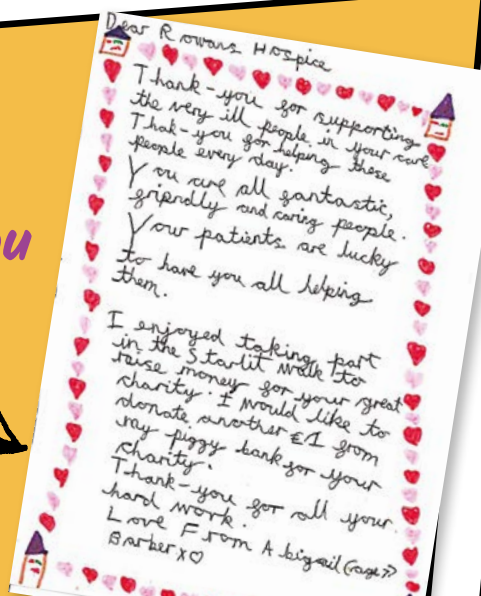 Dear Rowans Hospice
Thank-you for supporting
the very ill people in your care
Thak-you for helping these
people every day.
You are all fantastic,
friendly and caring people.
Your patients are lucky
to have you all helping
them.
I enjoyed taking part
in the Starlit Walk to
raise money for your great
charity. I would like to
donate another £1 from
my piggy bank for your
charity.
Thank-you for all your
hard work.
Love From Abigail (age 7)
Barber x♡
ou